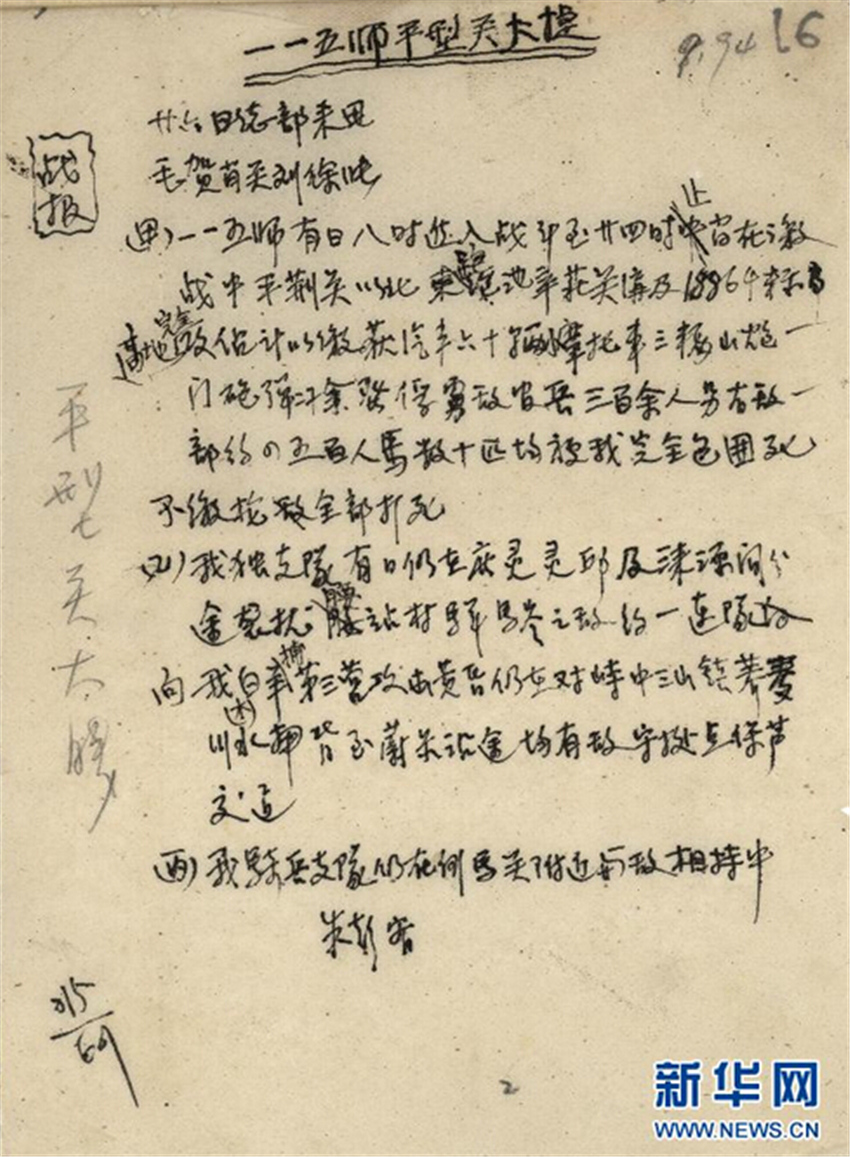 一一五师平型关大捷
9.94 16
战报
廿六日总部来电
毛贺肖关刘徐
(甲)一一五师有日八时进入战斗至廿四时止尚在激
战中平荆关以北东跑池辛庄关沟及1886.4
高地完全 估计以缴获汽车六十辆摩托车三辆山炮一
门炮弹二千余 俘虏敌官兵三百余人另有敌一
部约四五百人马数十匹均被我完全包围死
不缴枪敌全部打死
(乙)我独支队有日仍在广灵灵邱及涞源间分
途袭扰腰站村 之敌约一连队
向我 第三营攻击黄昏仍在对峙中三山镇荞麦
川水 至蔚 沿途均有敌守据点保护
交通
(丙)我骑兵支队仍在倒马关附近与敌相持中
朱彭
平型关大胜
2
新华网
WWW.NEWS.CN